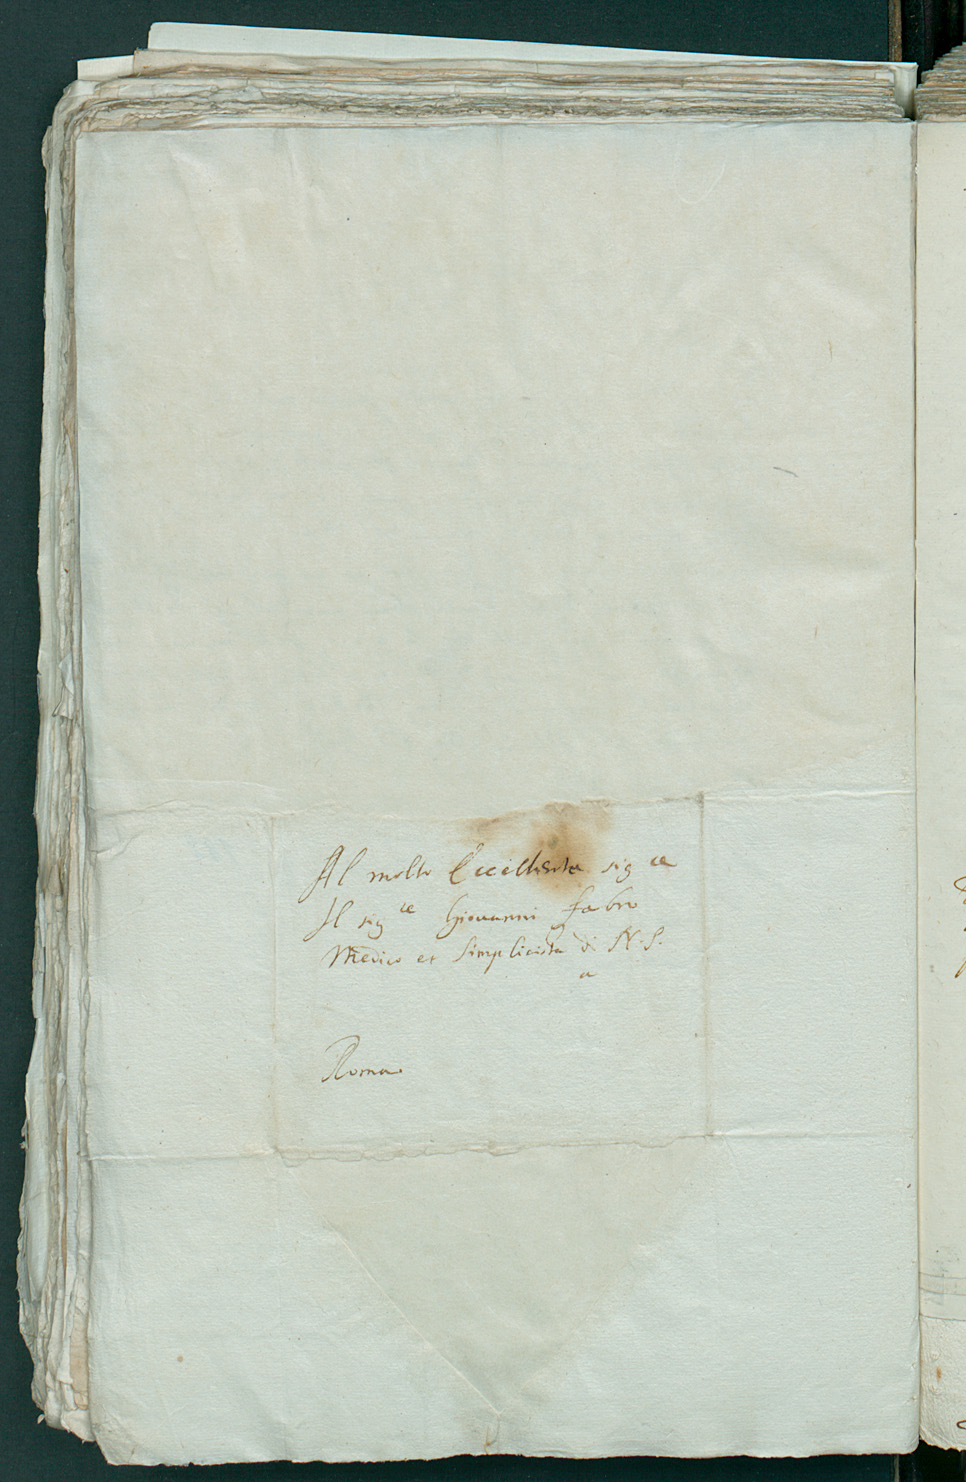 Al molto Eccellente sig re
Il sig re Giovanni fabro
Medico et Simplicista di N. S.
a
Roma.